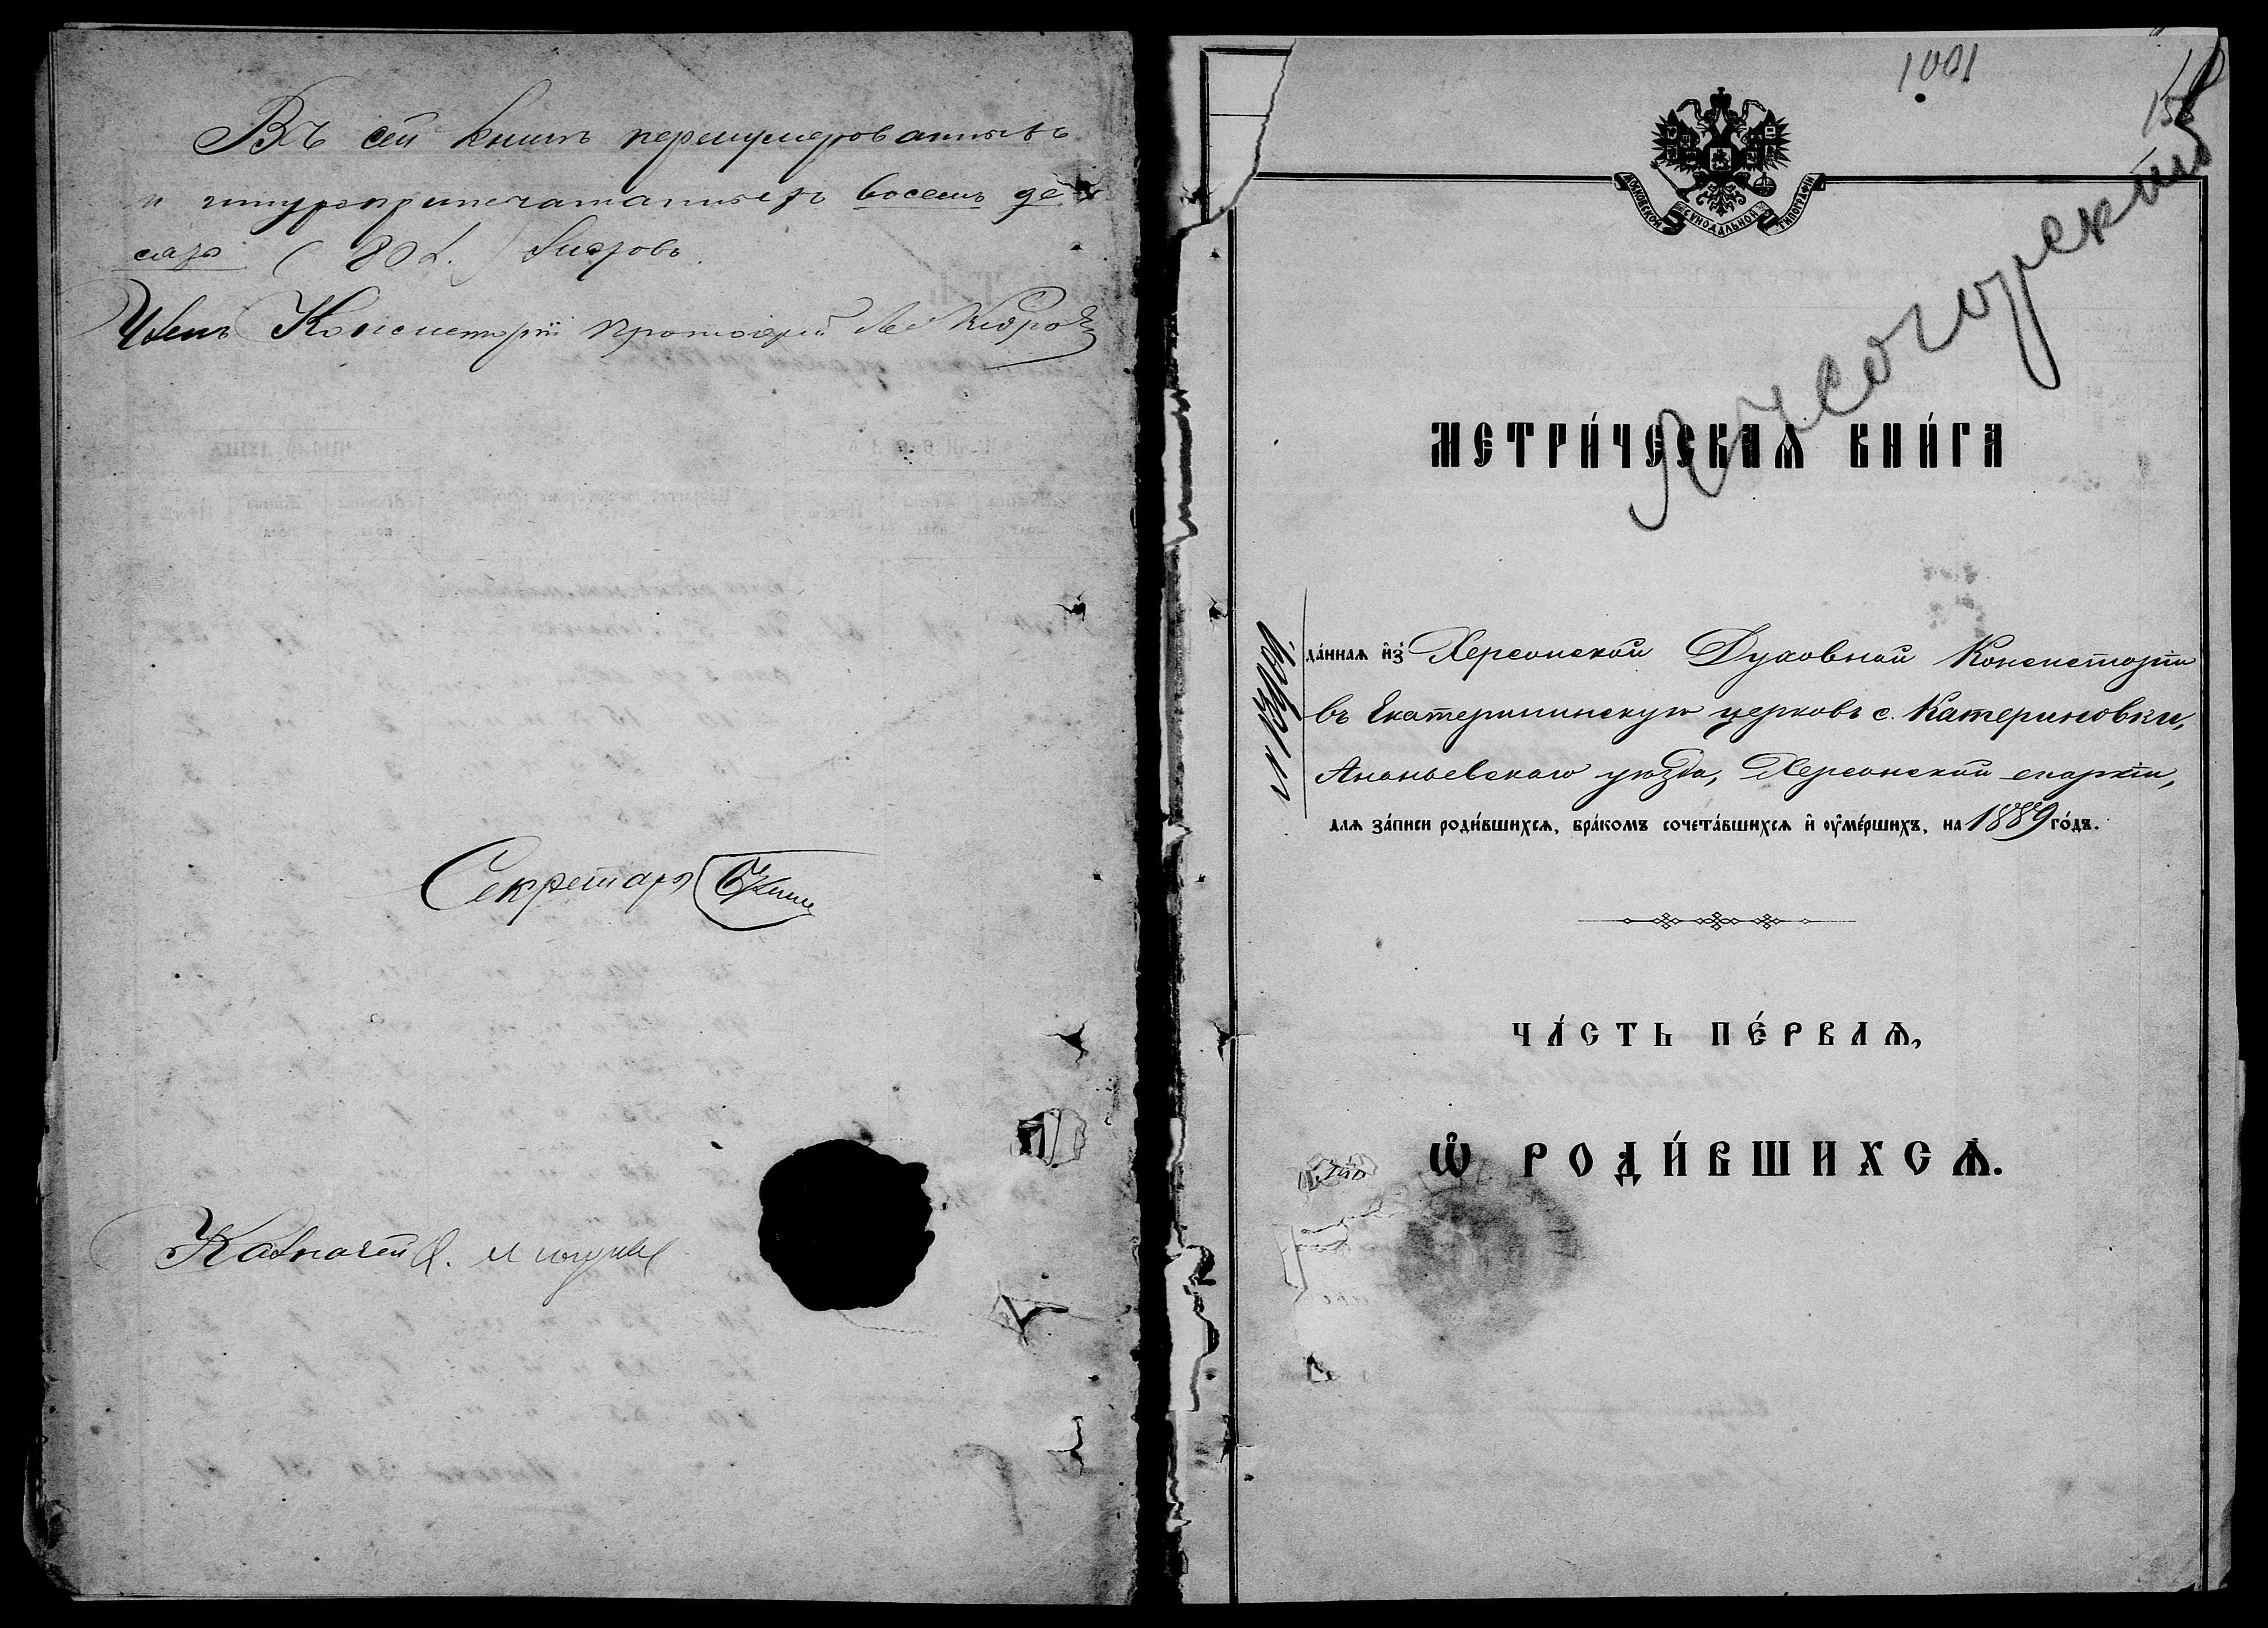 Въ сей книгѣ перенумерованныхъ
и шнуроприпечатанныхъ восемь де
сятъ (80 л.) листовъ.
Членъ Консисторіи Протоіерей
Секретарь
Казначей
1001
158
Лысогорский
МОСКОВСКОЙ СѴНОДАЛЬНОЙ ТИПОГРАФІИ
МЕТРИ́ЧЕСКАѦ КНИ́ГА
№ 13909.
да́нная и҆з̾ Херсонской Духовной Консисторіи
въ Екатерининскую церковь с. Катериновки,
Ананьевскаго уѣзда, Херсонской епархіи,
для за́писи роди́вшихся, бра́комъ сочета́вшихся и҆ ᲂу҆ме́ршихъ, на 1889 го́дъ.
ЧА́СТЬ ПЕ́РВАѦ,
Ѽ РОДИ́ВШИХСѦ.